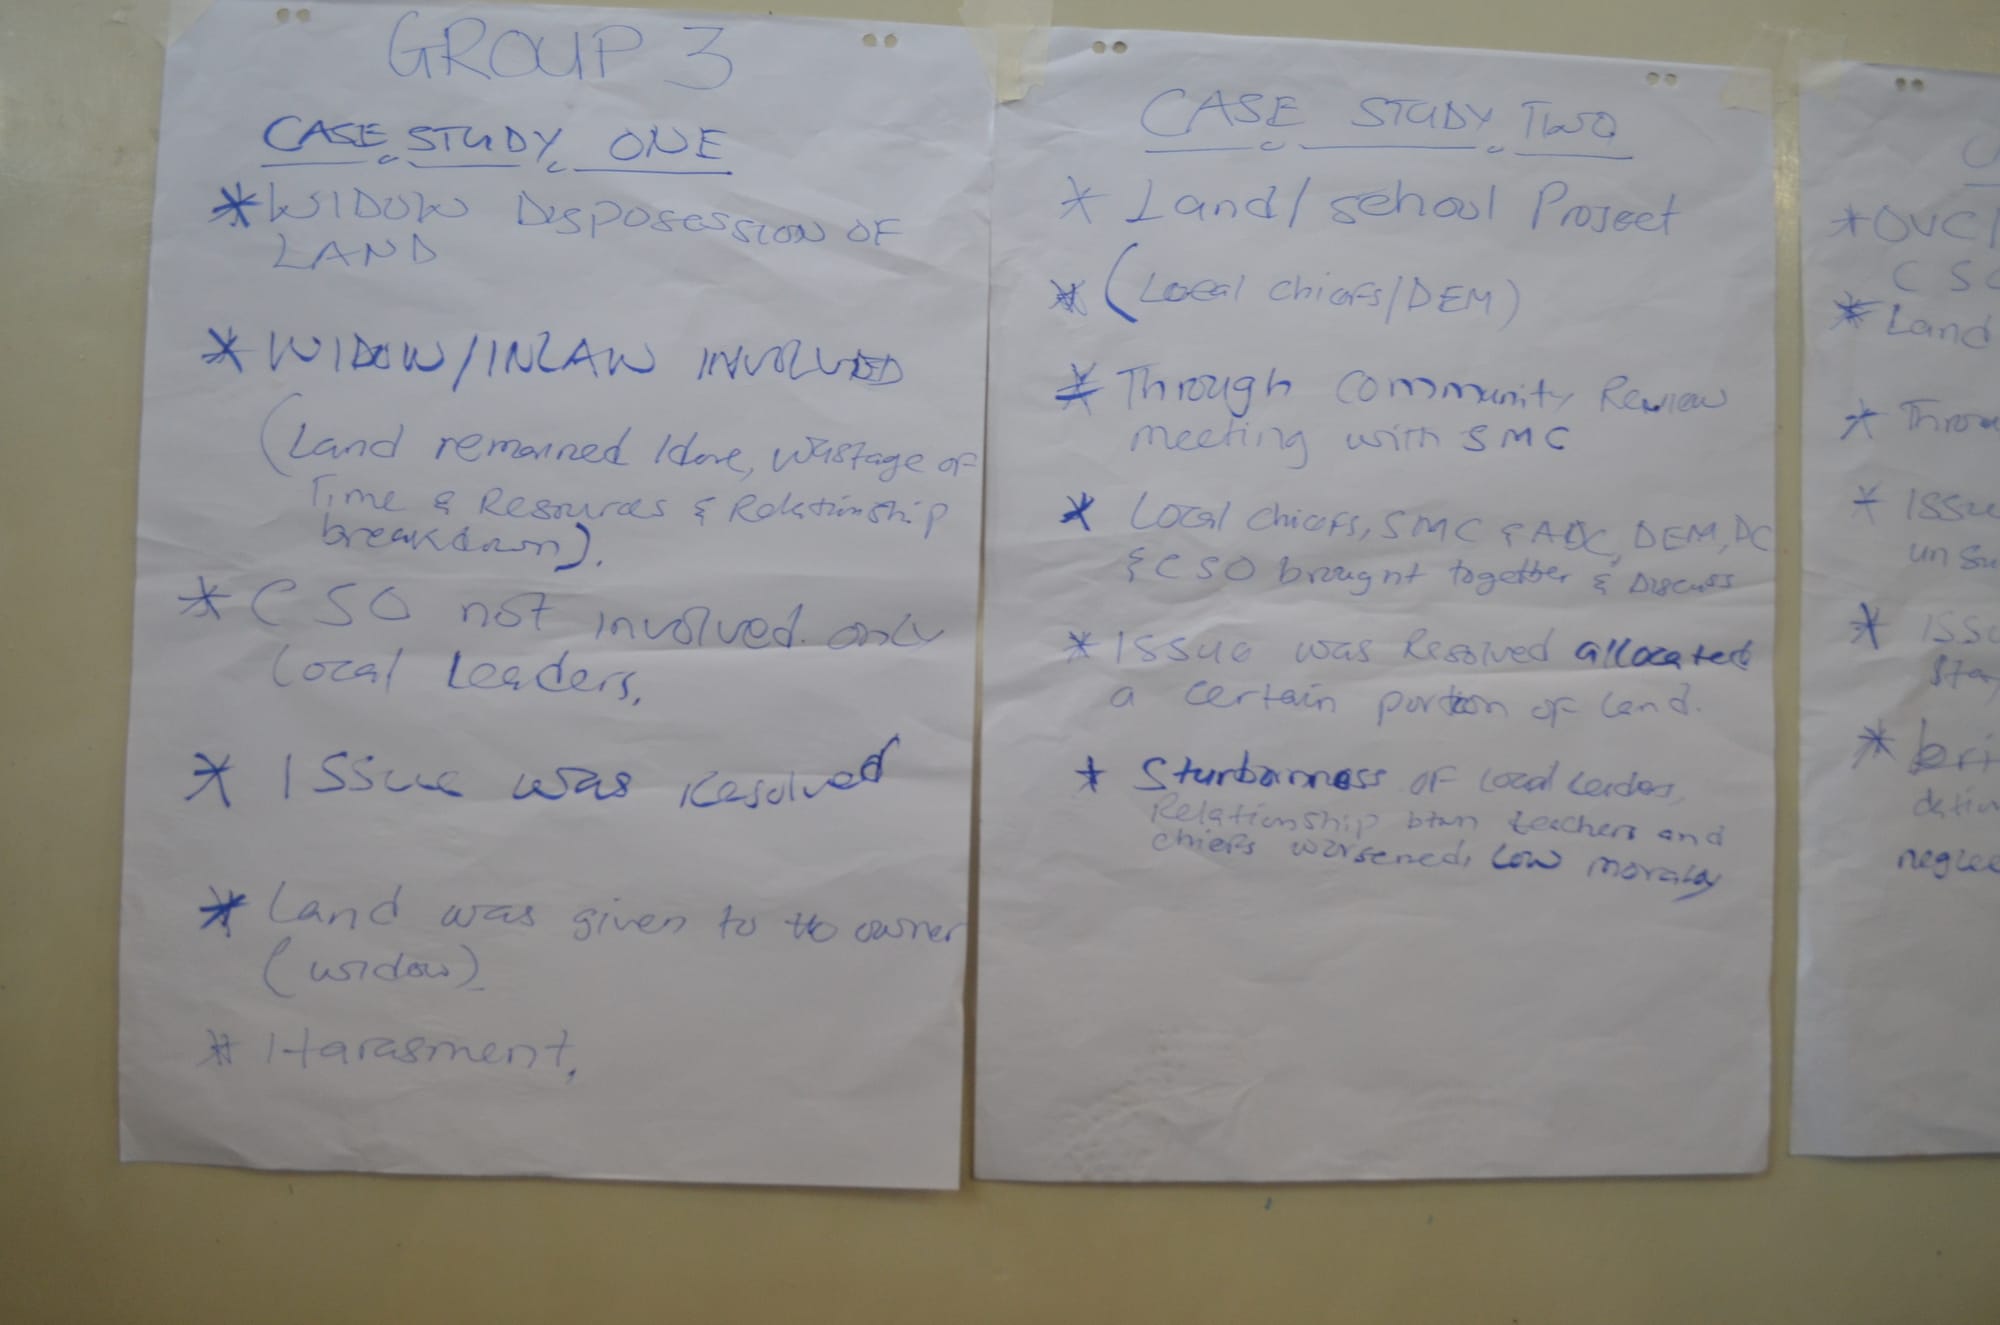 GROUP 3
CASE STUDY ONE
* WIDOW DISPOSESSION OF
LAND
* WIDOW/INLAW INVOLVED
(Land remained Idore, wastage of
Time & Resources & Relationship
breakdown).
* CSO not involved only
Local Leaders.
* ISSue was resolved
* Land was given to tto owner
(widow)
* Harasment.
CASE STUDY TWO
* Land/school Project
* (Local chiefs/DEM)
* Through community Review
meeting with SMC
* Local chiefs, SMC & ADC, DEM, DC
& CSO brought together & Discuss
* ISSue was Resolved allocated
a certain portion of land.
* Sturbornness of Local Leaders,
Relationship btwn teachers and
chiefs worsened, Low moraly
* OVC/
CSO
* Land
* Throu
* ISSue
un su
* ISSu
Stay
* bri
neglec